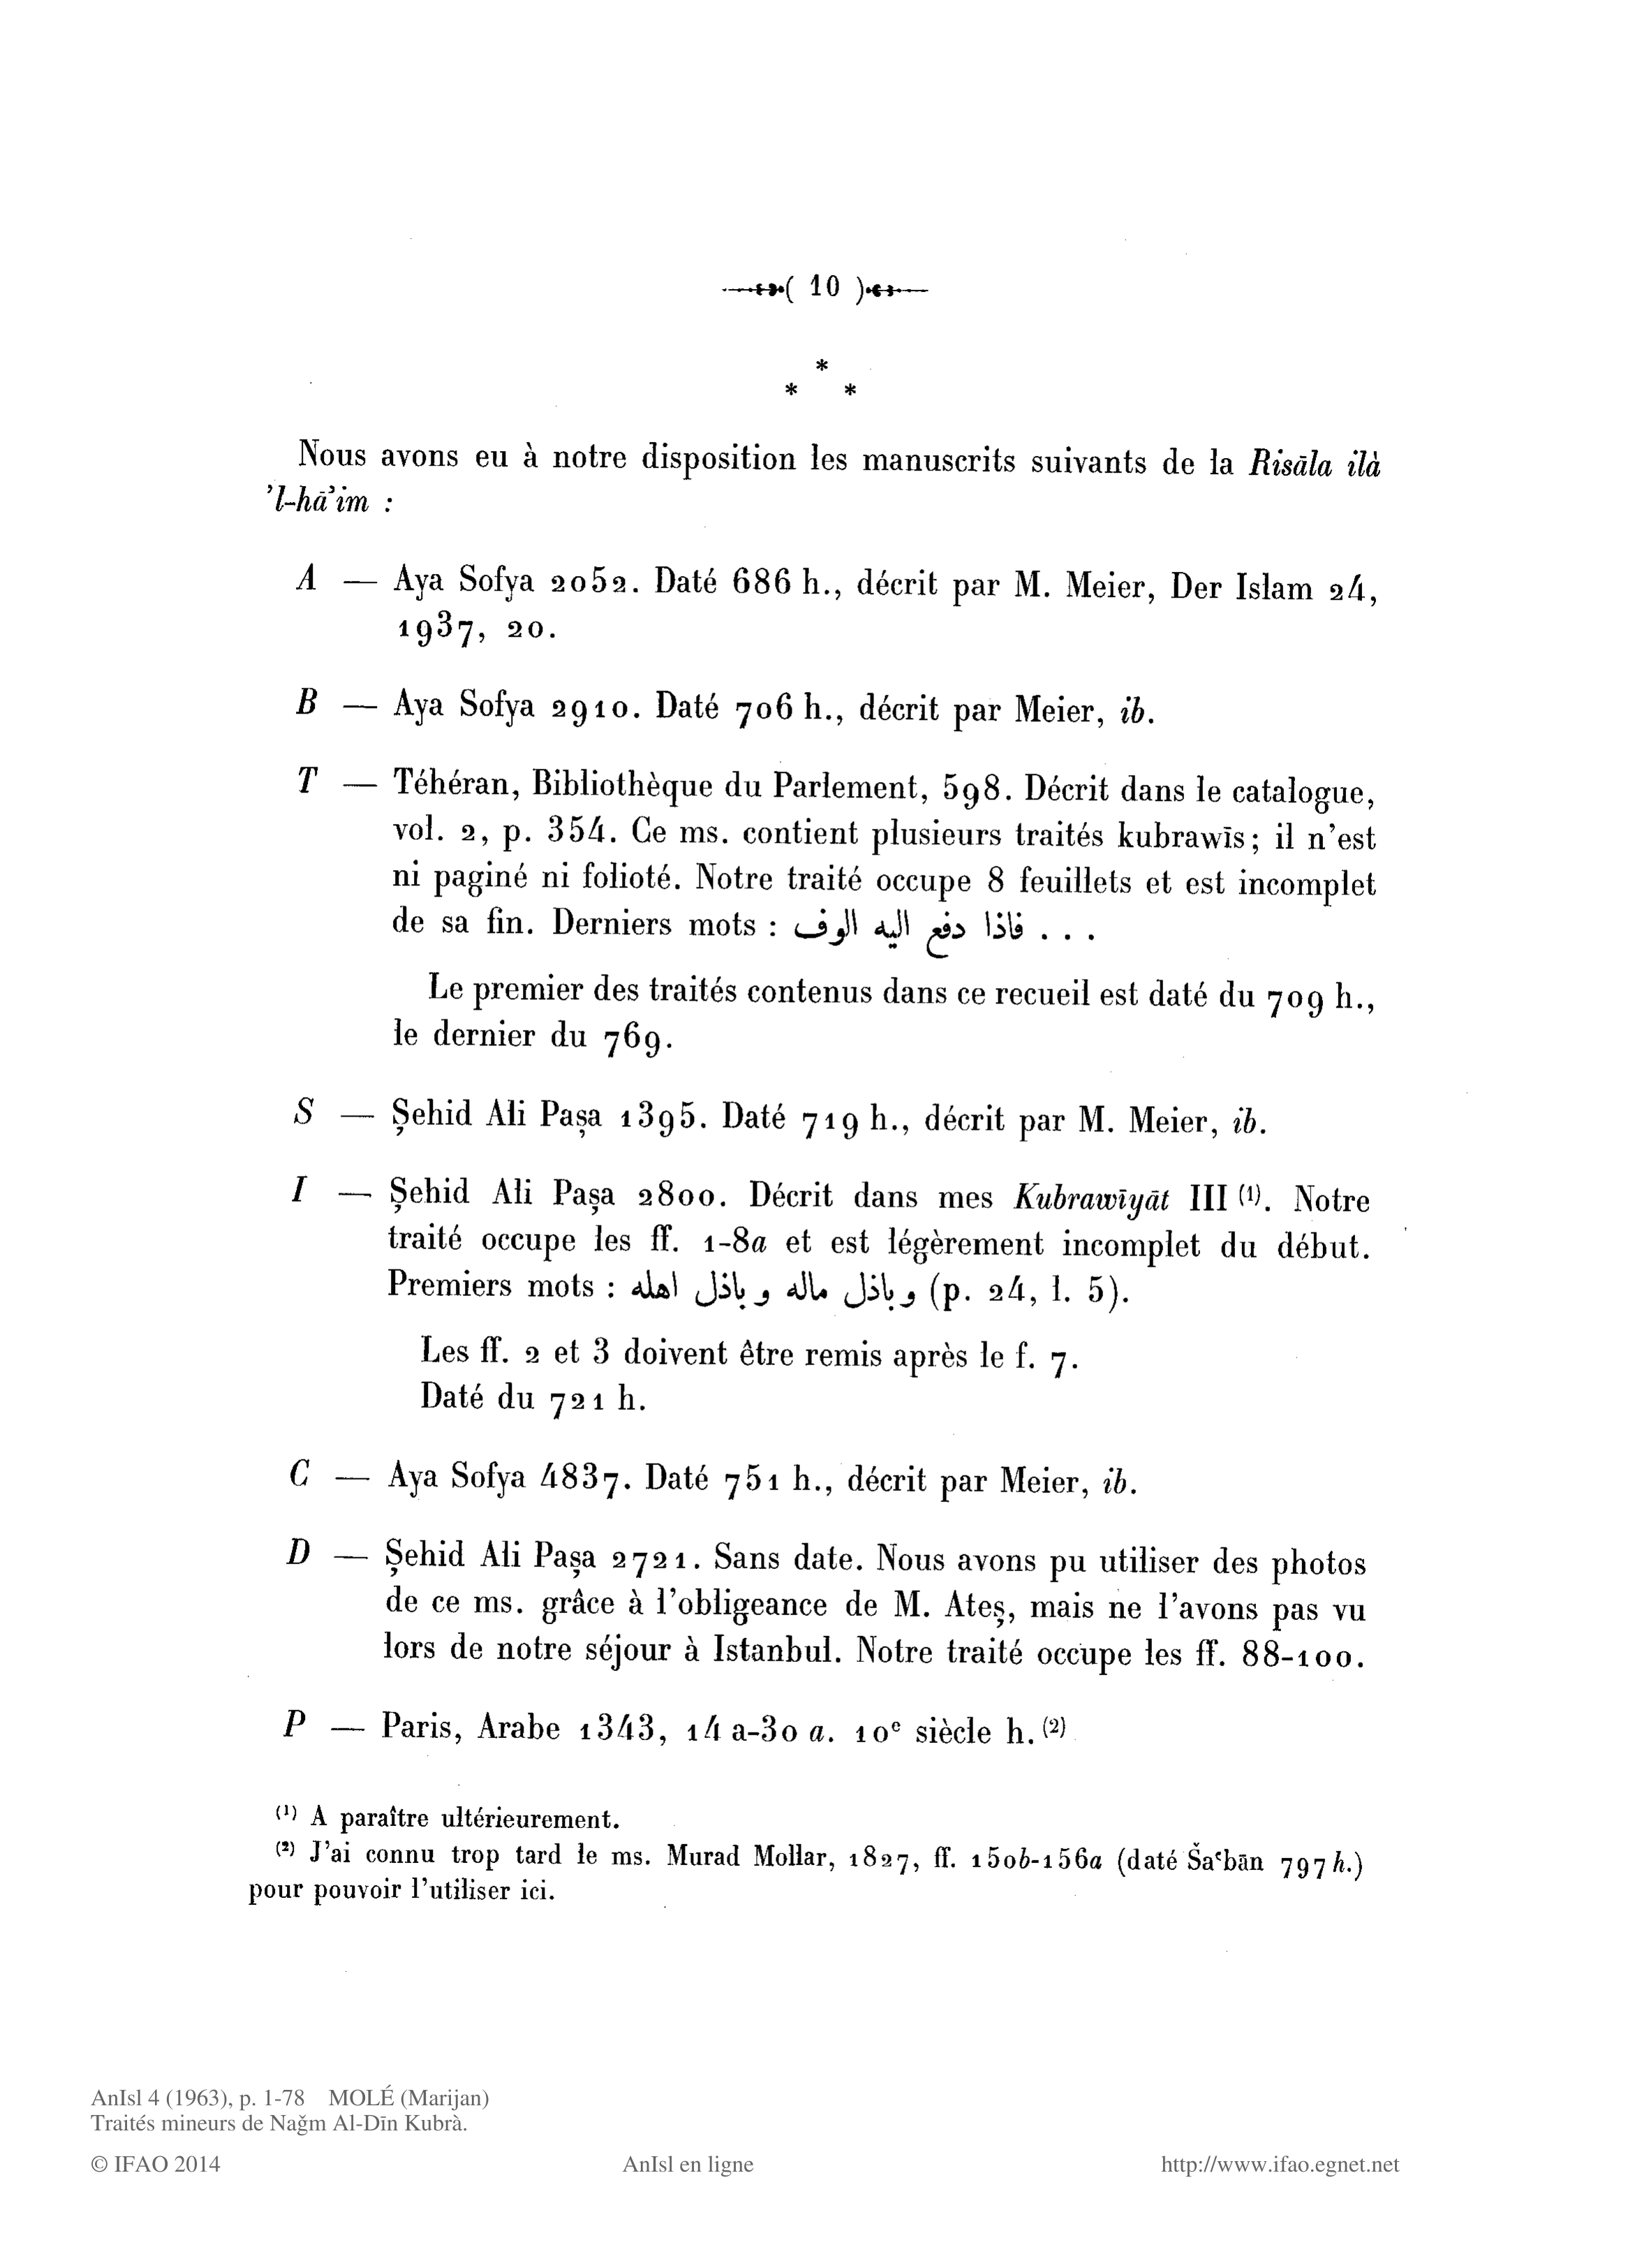 ( 10 )
*
* *
Nous avons eu à notre disposition les manuscrits suivants de la Risāla ilà
’l-hā’im :
A — Aya Sofya 2052. Daté 686 h., décrit par M. Meier, Der Islam 24,
1937, 20.
B — Aya Sofya 2910. Daté 706 h., décrit par Meier, ib.
T — Téhéran, Bibliothèque du Parlement, 598. Décrit dans le catalogue,
vol. 2, p. 354. Ce ms. contient plusieurs traités kubrawīs; il n’est
ni paginé ni folioté. Notre traité occupe 8 feuillets et est incomplet
de sa fin. Derniers mots : فاذا دفع اليه الوف . . .
Le premier des traités contenus dans ce recueil est daté du 709 h.,
le dernier du 769.
S — Şehid Ali Paşa 1395. Daté 719 h., décrit par M. Meier, ib.
I — Şehid Ali Paşa 2800. Décrit dans mes Kubrawīyāt III (1). Notre
traité occupe les ff. 1-8a et est légèrement incomplet du début.
Premiers mots : وباذل ماله و باذل اهله (p. 24, l. 5).
Les ff. 2 et 3 doivent être remis après le f. 7.
Daté du 721 h.
C — Aya Sofya 4837. Daté 751 h., décrit par Meier, ib.
D — Şehid Ali Paşa 2721. Sans date. Nous avons pu utiliser des photos
de ce ms. grâce à l’obligeance de M. Ateş, mais ne l’avons pas vu
lors de notre séjour à Istanbul. Notre traité occupe les ff. 88-100.
P — Paris, Arabe 1343, 14 a-30 a. 10e siècle h. (2)
(1) A paraître ultérieurement.
(2) J’ai connu trop tard le ms. Murad Mollar, 1827, ff. 150b-156a (daté Šaʿbān 797 h.)
pour pouvoir l’utiliser ici.
AnIsl 4 (1963), p. 1-78 MOLÉ (Marijan)
Traités mineurs de Naǧm Al-Dīn Kubrà.
© IFAO 2014 AnIsl en ligne http://www.ifao.egnet.net